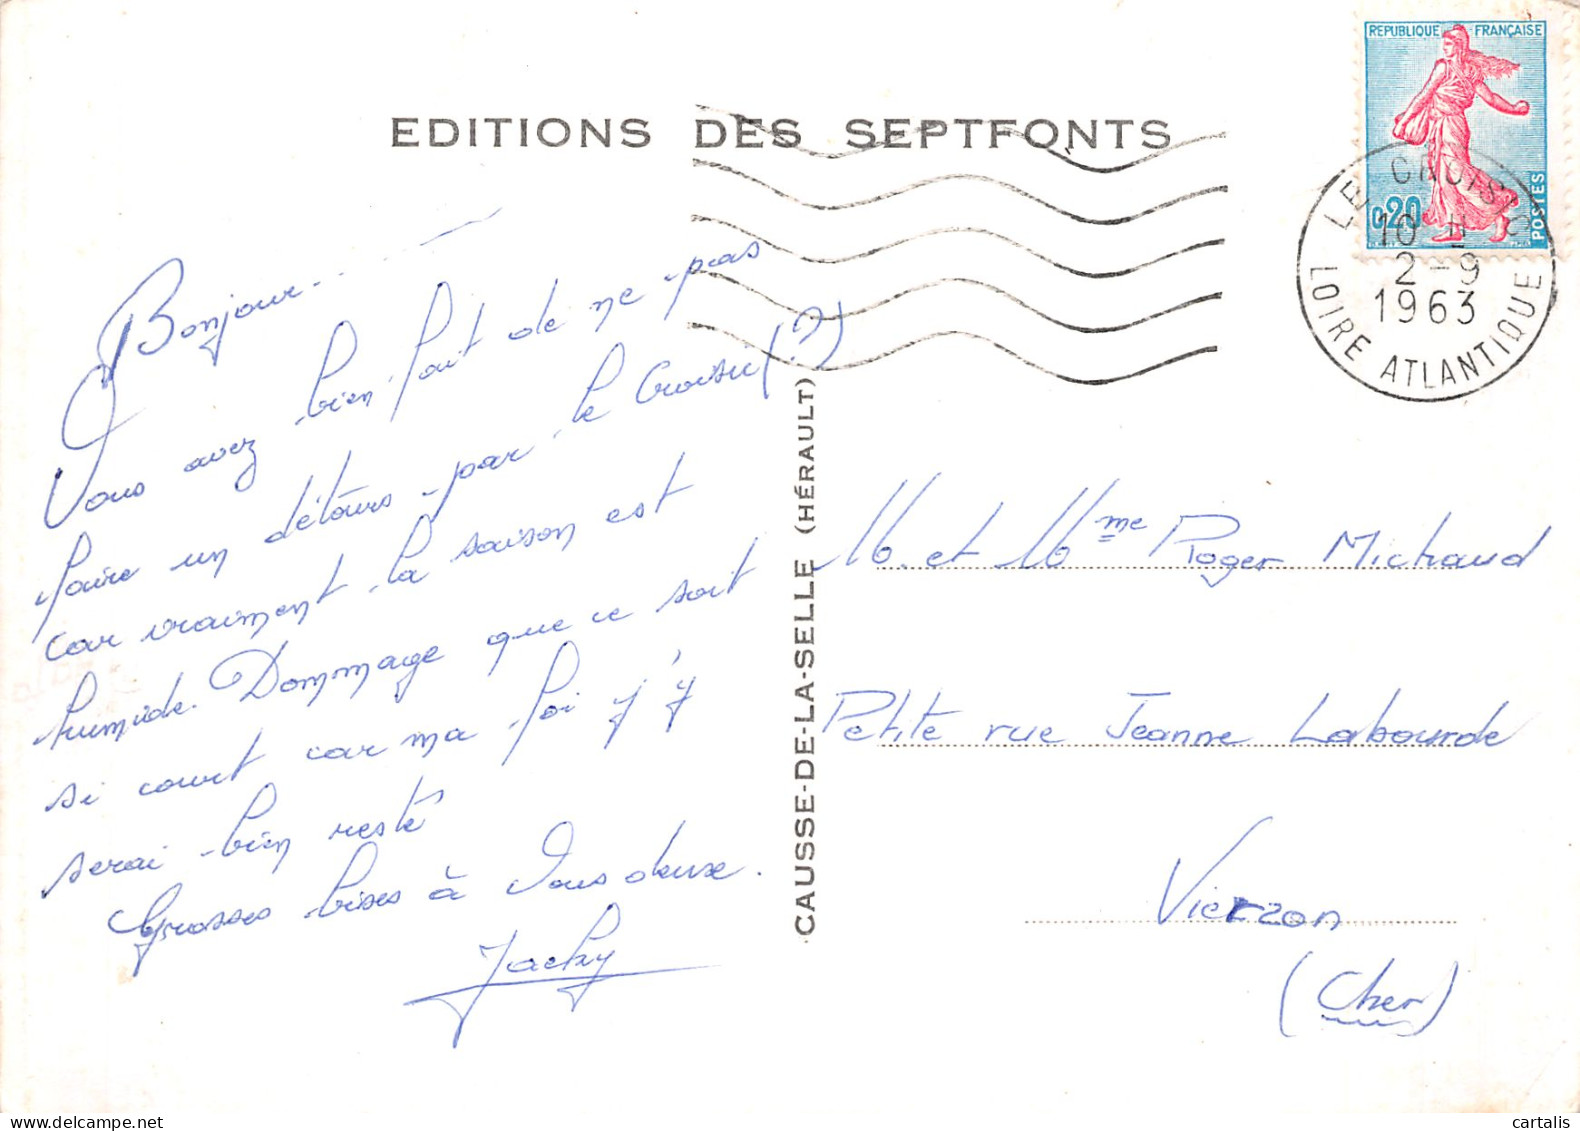 EDITIONS DES SEPTFONTS
REPUBLIQUE FRANÇAISE
0,20
POSTES
LE CROISIC
10 H
2-9
1963
LOIRE ATLANTIQUE
Bonjour....
Vous avez bien fait de ne pas
faire un détours par le Croisic (?)
car vraiment la saison est
humide. Dommage que ce soit
si court car ma foi j'y
serai bien resté
Grosses bises à Vous deux.
Jacky
CAUSSE-DE-LA-SELLE (HÉRAULT)
M. et Mme Roger Michaud
Petite rue Jeanne Labourde
Vierzon
(Cher)
cartalis